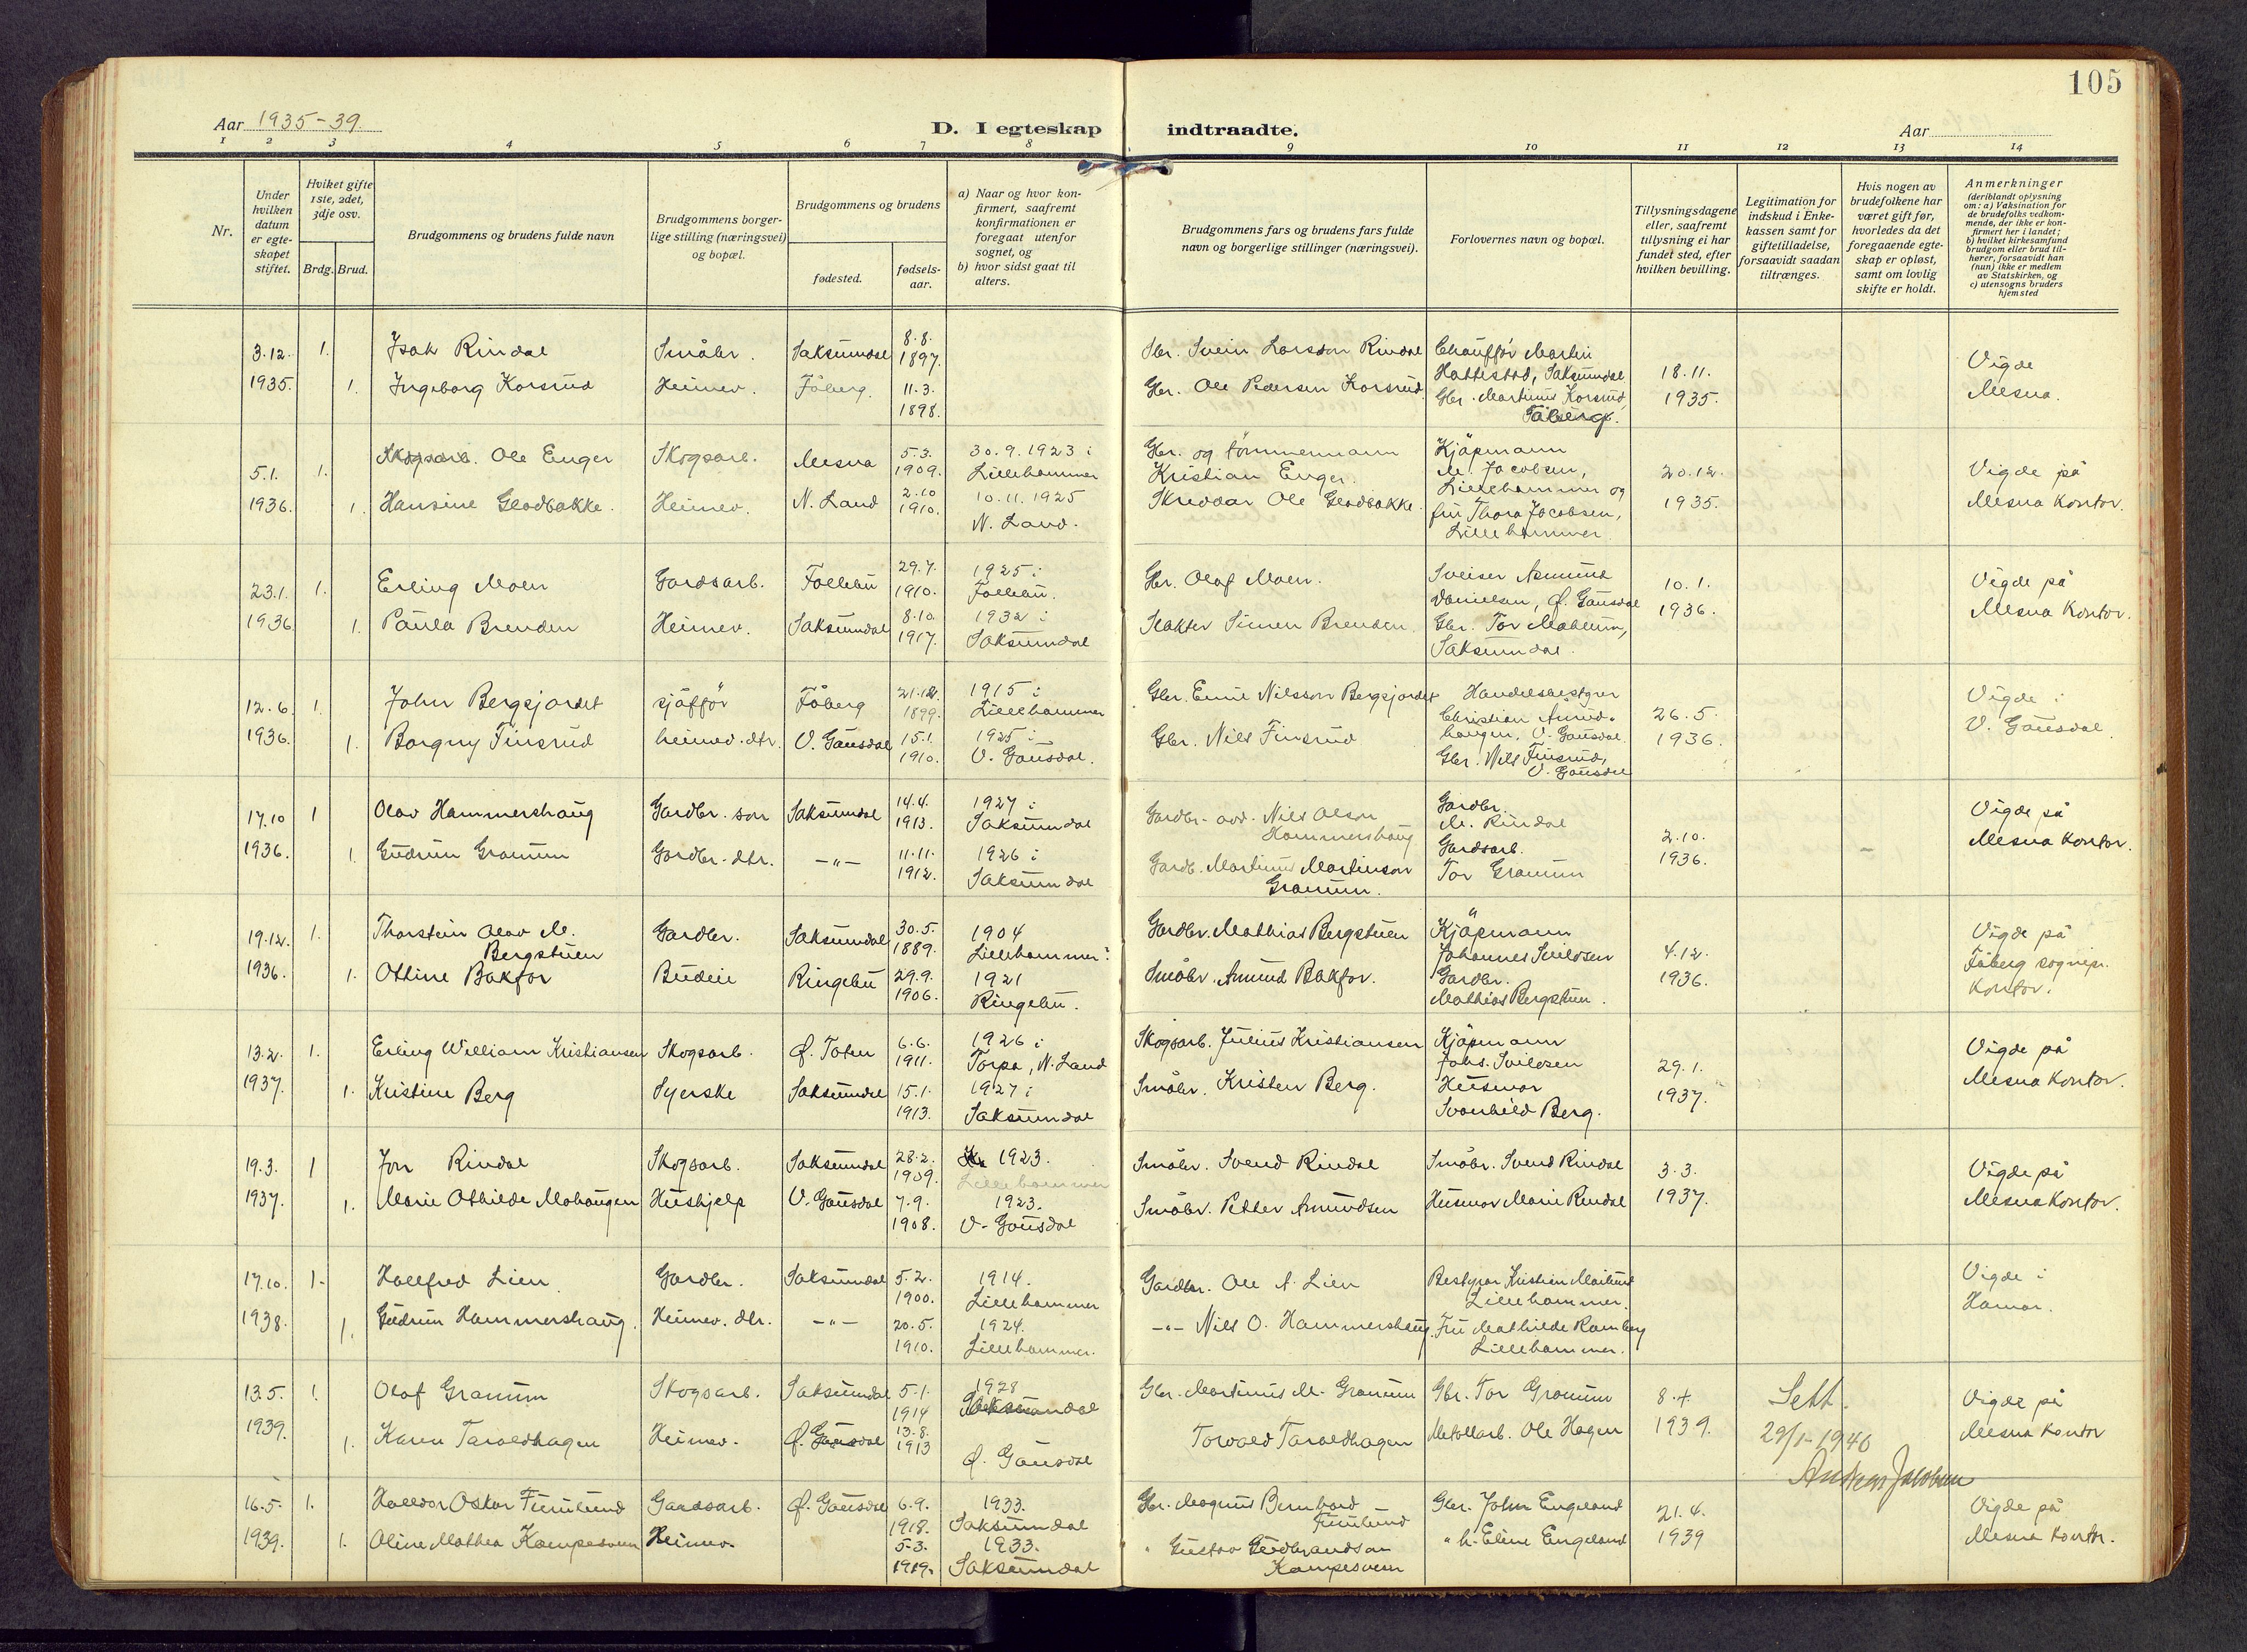 105
Aar 1935-39.
D. I egteskap indtraadte.
Aar
1 2 3 4 5 6 7 8 9 10 11 12 13 14
Nr.
Under hvilken datum er egteskapet stiftet.
Hviket gifte 1ste, 2det, 3dje osv.
Brdg. Brud.
Brudgommens og brudens fulde navn
Brudgommens borgerlige stilling (næringsvei) og bopæl.
Brudgommens og brudens
fødested.
fødselsaar.
a) Naar og hvor konfirmert, saafremt konfirmationen er foregaat utenfor sognet, og
b) hvor sidst gaat til alters.
Brudgommens fars og brudens fars fulde navn og borgerlige stillinger (næringsvei).
Forlovernes navn og bopæl.
Tillysningsdagene eller, saafremt tillysning ei har fundet sted, efter hvilken bevilling.
Legitimation for indskud i Enkekassen samt for giftetilladelse, forsaavidt saadan tiltrænges.
Hvis nogen av brudefolkene har været gift før, hvorledes da det foregaaende egteskap er opløst, samt om lovlig skifte er holdt.
Anmerkninger (deriblandt oplysning om: a) Vaksination for de brudefolks vedkommende, der ikke er konfirmert her i landet; b) hvilket kirkesamfund brudgom eller brud tilhører, forsaavidt han (hun) ikke er medlem av Statskirken, og c) utensogns bruders hjemsted
3.12. 1935. 1. Isak Rindal Småbr. Saksumdal 8.8. 1897. Gbr. Svein Larsson Rindal Chauffør Martin Hattestad, Saksumdal 18.11. 1935. Vigde Mesna.
1. Ingeborg Korsrud Heimev. Fåberg. 11.3. 1898. Gbr. Ole Pedersen Korsrud Gbr. Martinus Korsrud, Fåberg.
5.1. 1936. 1. Ole Enger Skogsarb. Mesna 5.3. 1909. 30.9.1923 i Lillehammer Gbr. og tømmermann Kristian Enger. Kjøpmann M. Jacobsen, Lillehammer og 20.12. 1935. Vigde på Mesna kontor.
1. Hansine Gladbakke. Heimev. N. Land 2.10 1910. 10.11.1925 N. Land. Skreddar Ole Gladbakke. fru Thora Jacobsen, Lillehammer
23.1. 1936 1. Erling Moen Gardsarb. Follebu 29.7. 1910. 1925 i Follebu. Gbr. Olaf Moen. Sveiser Asmund Danielsen, Ø. Gausdal 10.1. 1936. Vigde på Mesna kontor.
1. Paula Brenden Heimev. Saksumdal 8.10. 1917. 1932 i Saksumdal Slakter Simen Brenden Gbr. Tor Mæhlum, Saksumdal.
12.6. 1936. 1. John Bergsjordet sjåffør Fåberg 21.12. 1899. 1915 i Lillehammer Gbr. Emil Nilsson Bergsjordet Handelsbestyrer Christian Aurudhaugen, V. Gausdal. 26.5. 1936. Vigde i V. Gausdal.
1. Borgny Finsrud heimev. dtr. V. Gausdal 15.1. 1910. 1925 i V. Gausdal. Gbr. Nils Finsrud Gbr. Nils Finsrud, V. Gausdal
17.10 1936. 1 Olav Hammershaug Gardbr. son Saksumdal 14.4. 1913. 1927 i Saksumdal Gardbr. Nils Olson Hammershaug Gardbr. M. Rindal 2.10. 1936. Vigde på Mesna kontor.
1. Gudrun Granum Gardbr. dtr. -"- 11.11. 1912. 1926 i Saksumdal Gardb. Martinus Martinson Granum. Gardsarb. Tor Granum
19.12. 1936. 1. Thorstein Olav M. Bergstuen Gardbr. Saksumdal 30.5. 1889. 1904 Lillehammer Gardbr. Mathias Bergstuen Kjøpmann Johannes Svilosen 4.12. 1936. Vigde på Fåberg sognepr. kontor.
1. Ottine Bakfor Budeie Ringebu 29.9. 1906. 1921 Ringebu. Småbr. Amund Bakfor. Gardbr. Mathias Bergstuen.
13.2. 1937. 1. Erling William Kristiansen Skogsarb. Ø. Toten 6.6. 1911. 1926 i Torpa, N. Land Skogsarb. Julius Kristiansen Kjøpmann Johs. Svilosen 29.1. 1937. Vigde på Mesna kontor.
1. Kristine Berg Syerske Saksumdal 15.1. 1913. 1927 i Saksumdal Småbr. Kristen Berg. Husmor Svanhild Berg.
19.3. 1937. 1 Jon Rindal Skogsarb. Saksumdal 28.2. 1909. 1923. Lillehammer Småbr. Svend Rindal Småbr. Svend Rindal 3.3. 1937. Vigde på Mesna kontor.
1. Marie Othilde Mohaugen Hushjelp V. Gausdal 7.9. 1908. 1923. V. Gausdal Småbr. Petter Amundsen Husmor Marie Rindal
17.10. 1938. 1. Hallfred Lien Gardbr. Saksumdal 5.2. 1900. 1914. Lillehammer Gardbr. Ole A. Lien Bestyrer Kristian Moilund Lillehammer. Vigde i Hamar.
1. Gudrun Hammershaug. Heimev. dtr. -"- 20.5. 1910. 1924. Lillehammer. -"- Nils O. Hammershaug. Fru Mathilde Ramberg Lillehammer.
13.5. 1939. 1. Olaf Granum Skogsarb. Saksumdal 5.1. 1914 1928 Saksumdal Gbr. Martinus M. Granum Gbr. Tor Granum 8.4. 1939. Sett. 29/1-1940 Andreas Jacobsen Vigde på Mesna kontor
1. Karen Taraldhagen Heimev. Ø. Gausdal 13.8. 1913 Ø. Gausdal Torvald Taraldhagen Metallarb. Ole Hagen
16.5. 1939. 1. Halldor Oskar Furulund Gaardsarb. Ø. Gausdal 6.9. 1918. 1933. Saksumdal Gbr. Magnus Bernhard Furulund Gbr. John Engeland 21.4. 1939 Vigde på Mesna kontor.
1. Oline Mathea Kampesveen Heimev. 5.3. 1919. 1933. Saksumdal " Gustav Gudbrandson Kampesveen " h. Eline Engeland